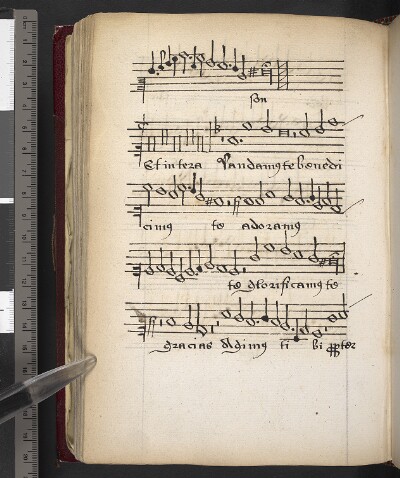 son
Et in tera Laudamus te benedi
cimus te adoramus
te glorificamus te
gracias agimus ti bi propter